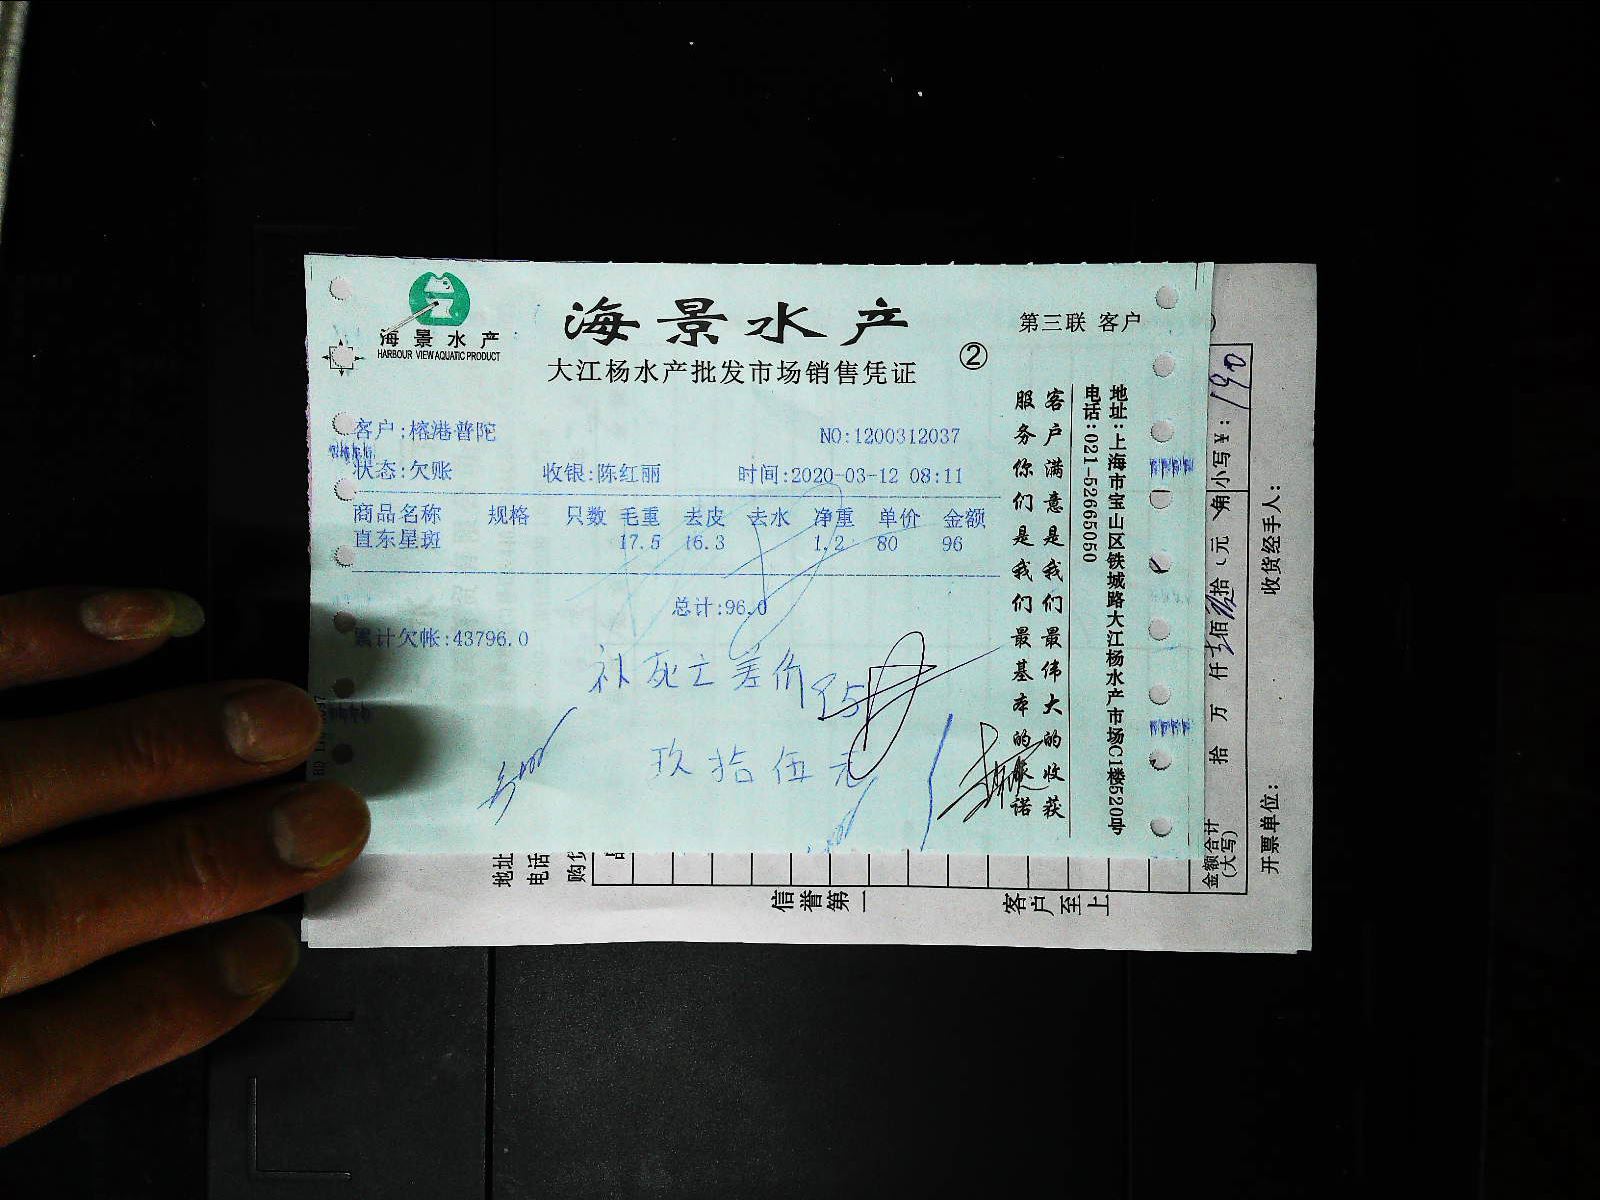 海景水产
HARBOUR VIEW AQUATIC PRODUCT
海景水产
第三联 客户
大江杨水产批发市场销售凭证
②
客户:榕港普陀
NO:1200312037
状态:欠账 收银:陈红丽 时间:2020-03-12 08:11
商品名称 规格 只数 毛重 去皮 去水 净重 单价 金额
直东星斑 17.5 16.3 1.2 80 96
总计:96.0
累计欠帐:43796.0
补死亡差价
玖拾伍元
客户满意是我们最伟大的收获
服务你们是我们最基本的承诺
地址:上海市宝山区铁城路大江杨水产市场C1楼520号
电话:021-52665050
金额合计
(大写)
拾 万 仟 佰 拾 元 角 小写¥: 190
开票单位:
收货经手人:
地址
电话
购货
品
信誉第一
客户至上